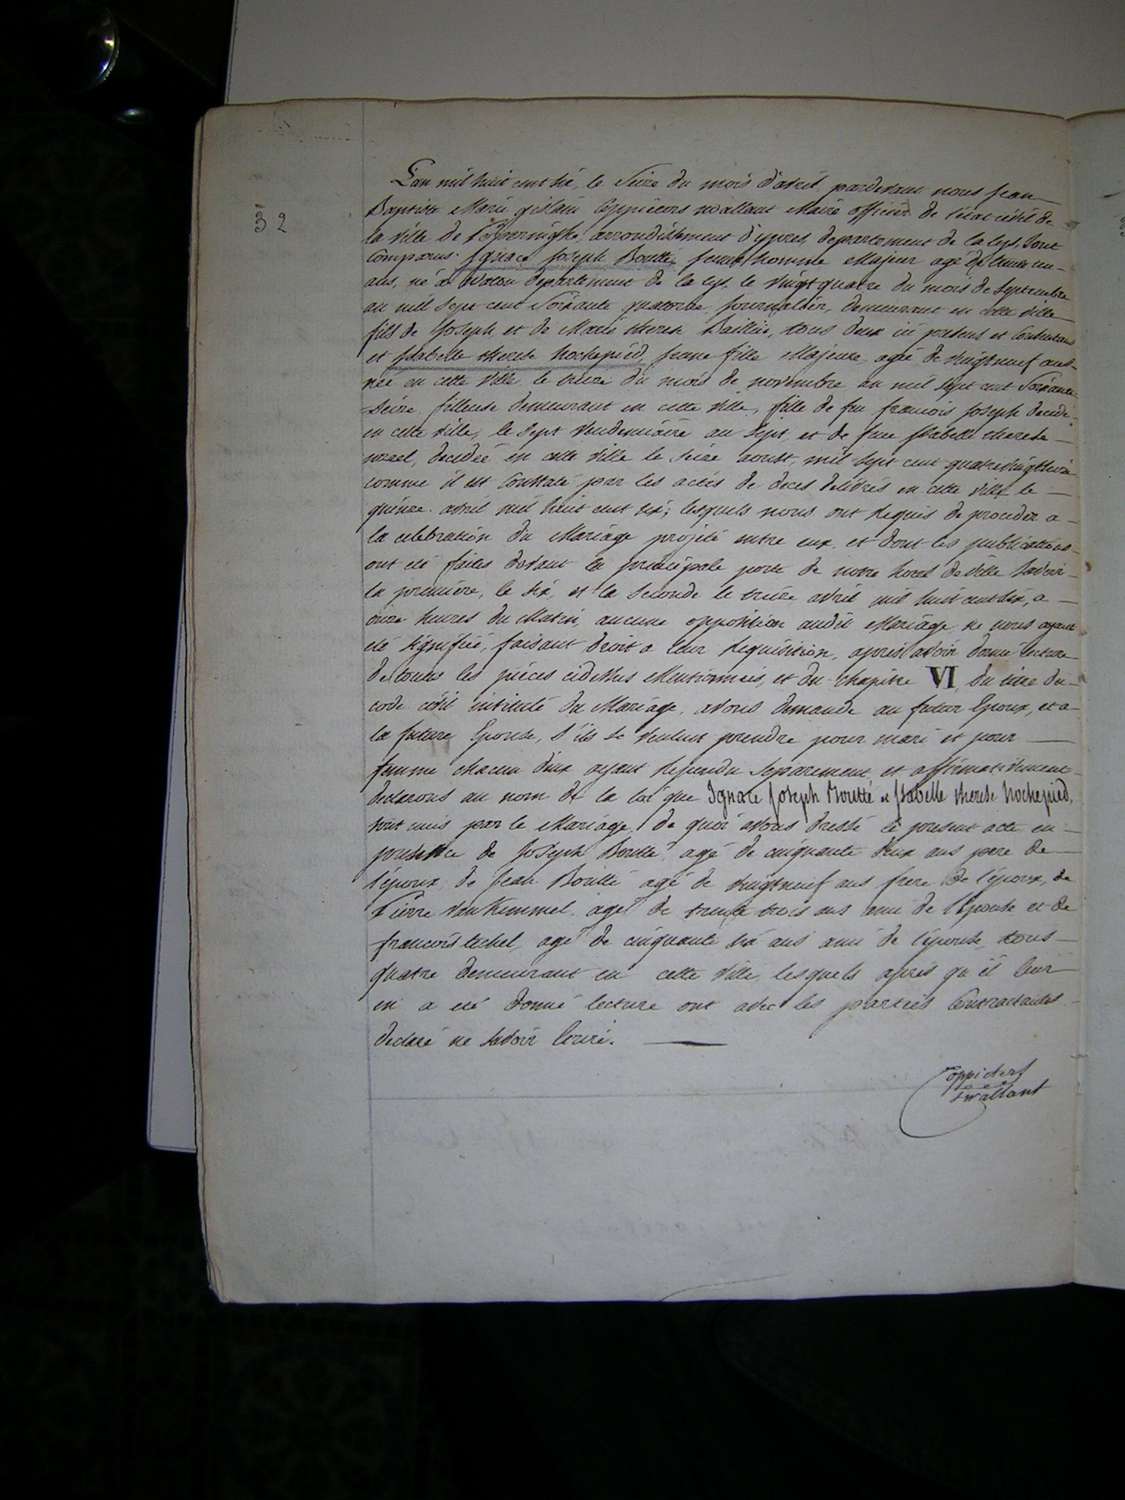 32
L'an mil huit cent six, le Seize du mois d'avril pardevant nous Jean
Baptiste Marie gislain Coppieters wallant Maire officier de l'etat civil de
la ville de Poperinghe, arrondissement d'ypres, departement de la lys. Sont
Comparus. Ignace Joseph Boutté, jeune homme Majeur agé de trente un
ans, né à Watou departement de la lys, le vingt quatre du mois de Septembre
au mil Sept cent Soixante quatorze, journallier, demeurant en cette ville
fils de Joseph et de Marie therese Baillie, tous deux ici presens et Consentans
et Isabelle therese hochepied, jeune fille Majeure agée de vingtneuf ans
née en cette ville le treize du mois de novembre an mil sept cent Soixante
Seize, fileuse demeurant en cette ville, fille de feu francois Joseph decedé
en cette ville, le Sept vendemiaire an Sept et de feue Isabelle therese
decedée en cette ville le Seize aoust, mil sept cent quatrevingt
comme il est Constaté par les actes de deces delivrés en cette ville le
quinze avril mil huit cent six; lesquels nous ont requis de proceder a
la celebration du Mariage projeté entre eux et dont les publications
ont été faites devant la principale porte de notre hotel de ville Savoir
la premiere, le six, et la Seconde le treize avril mil huit cent six, a
onze heures du Matin, aucune opposition audit Mariage ne nous ayant
eté signifiée, faisant droit a leur requisition, apres avoir donné lecture
de toutes les pieces cidessus Mentionnées, et du chapitre VI du titre du
code civil intitulé du Mariage, avons demandé au futur Epoux, et a
la future Epouse, s'ils se veulent prendre pour mari et pour
femme chacun d'eux ayant repondu Separement et affirmativement
declarons au nom de la loi que Ignace Joseph Boutté et Isabelle therese hochepied,
Sont unis par le Mariage, de quoi avons dressé le present acte en
presence de Joseph Boutté, agé de cinquante deux ans pere de
l'époux, de Jean Boutté agé de vingtneuf ans frere de l'époux, de
Pierre Van Kemmel, agé de trente trois ans ami de l'épouse et de
francois lechel agé de cinquante six ans ami de l'épouse, tous
quatre demeurant en cette ville, lesquels après qu'il leur
en a eté donné lecture ont avec les parties Contractantes
declaré ne Savoir Ecrire.
Coppieters
Twallant